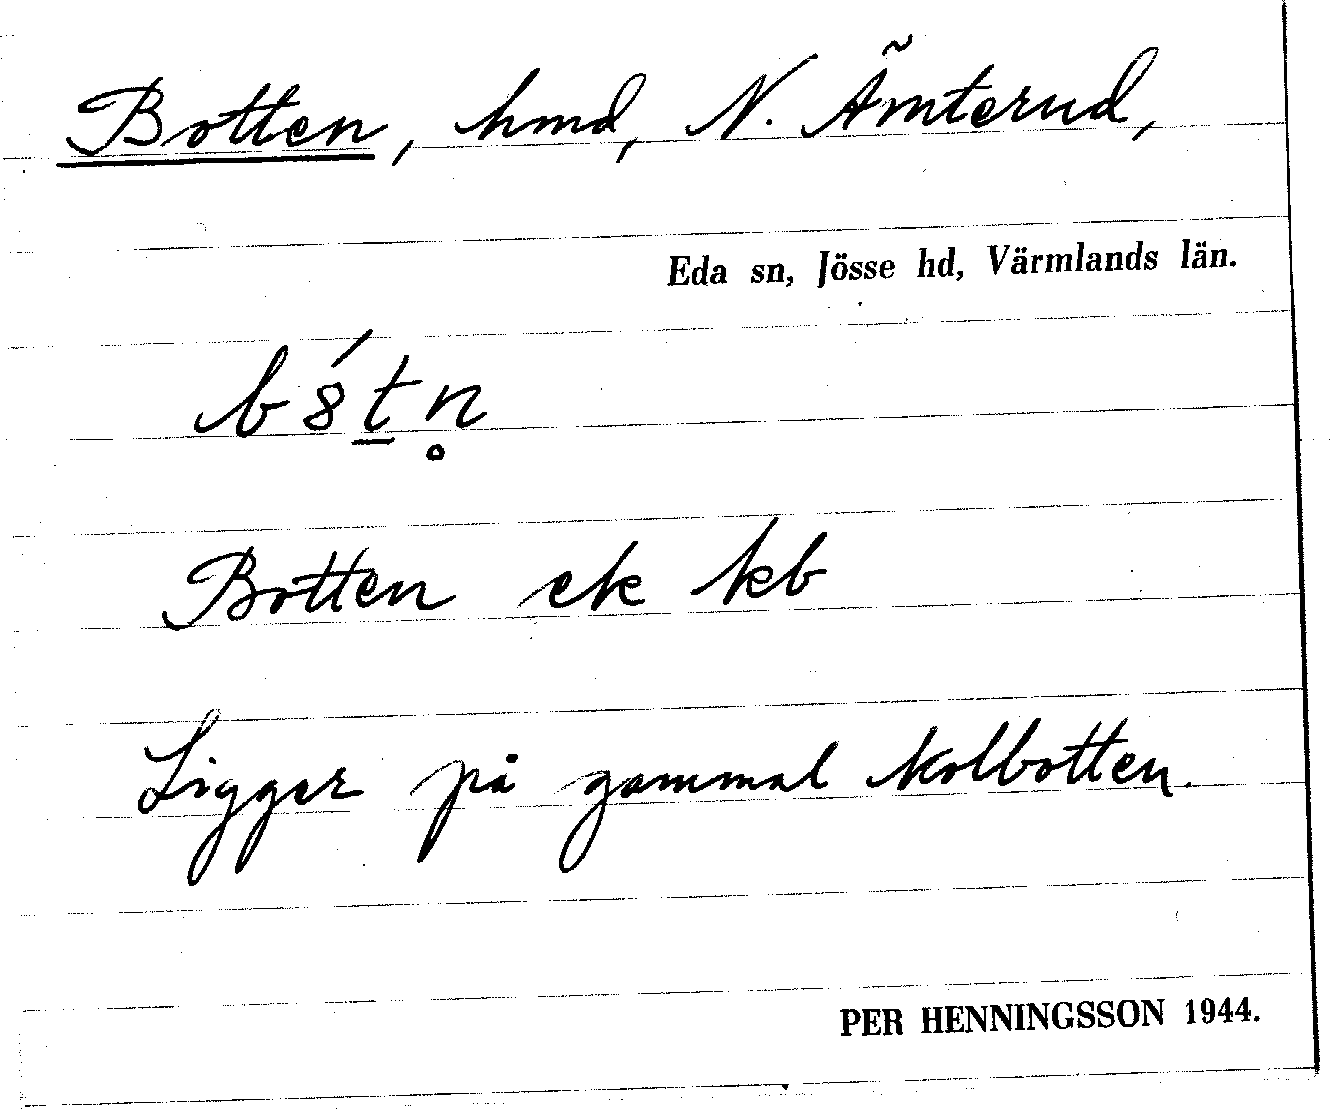 Botten, hmd, N. Ämterud,
Eda sn, Jösse hd, Värmlands län.
b8́t̲n̥
Botten ek kb
Ligger på gammal kolbotten.
PER HENNINGSSON 1944.